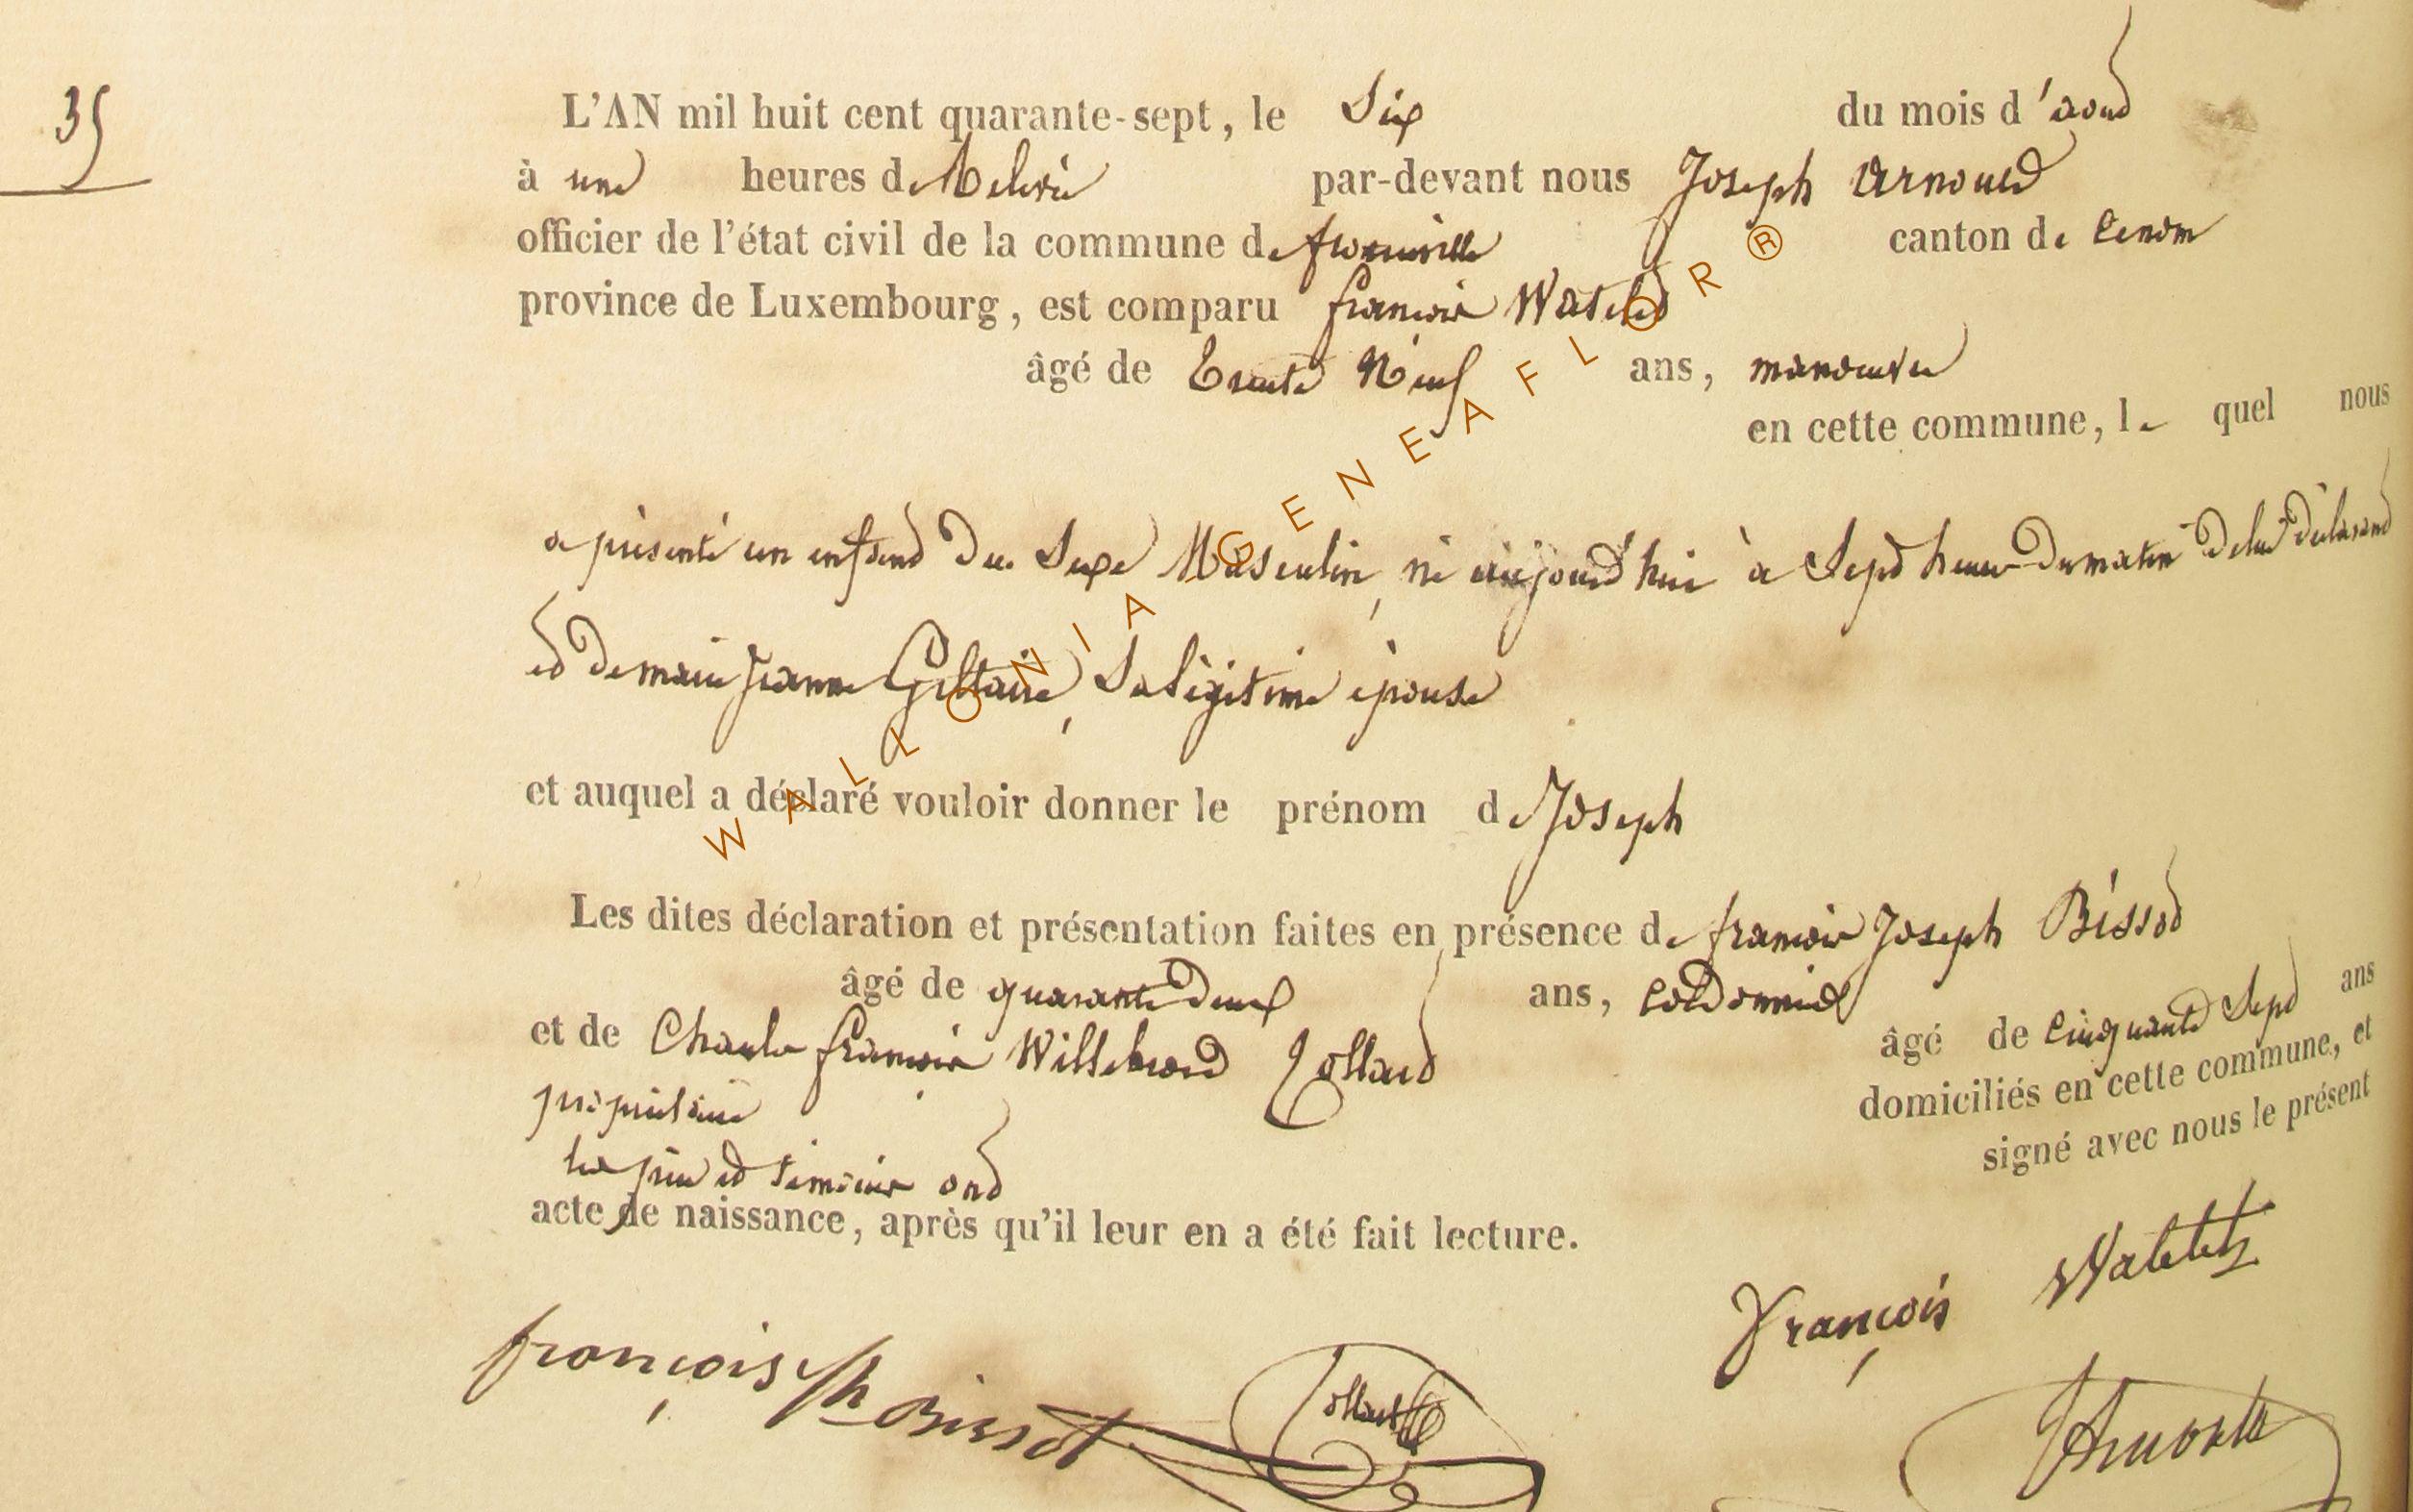 35
L'AN mil huit cent quarante-sept, le Six du mois d'aout
à une heures de Relevée par-devant nous Joseph Arnould
officier de l'état civil de la commune de fronville canton de
province de Luxembourg, est comparu françois Watelet
âgé de Trente Neuf ans, manouvrier
en cette commune, le quel nous
a présenté un enfant du Sexe Masculin, né aujourd'hui à Sept heures du matin de lui déclarant
et de marie jeanne Giltaire, Sa légitime épouse
et auquel a déclaré vouloir donner le prénom de Joseph
Les dites déclaration et présentation faites en présence de françois Joseph Bissot
âgé de quarante deux ans, cordonnier
et de Charles françois Willebrord Collard âgé de cinquante Sept ans
propriétaire domiciliés en cette commune, et
les père et témoins ont signé avec nous le présent
acte de naissance, après qu'il leur en a été fait lecture.
François Watelet
françois Jh Bissot Collard
JArnould
WALLONIA GENEAFLOR ®